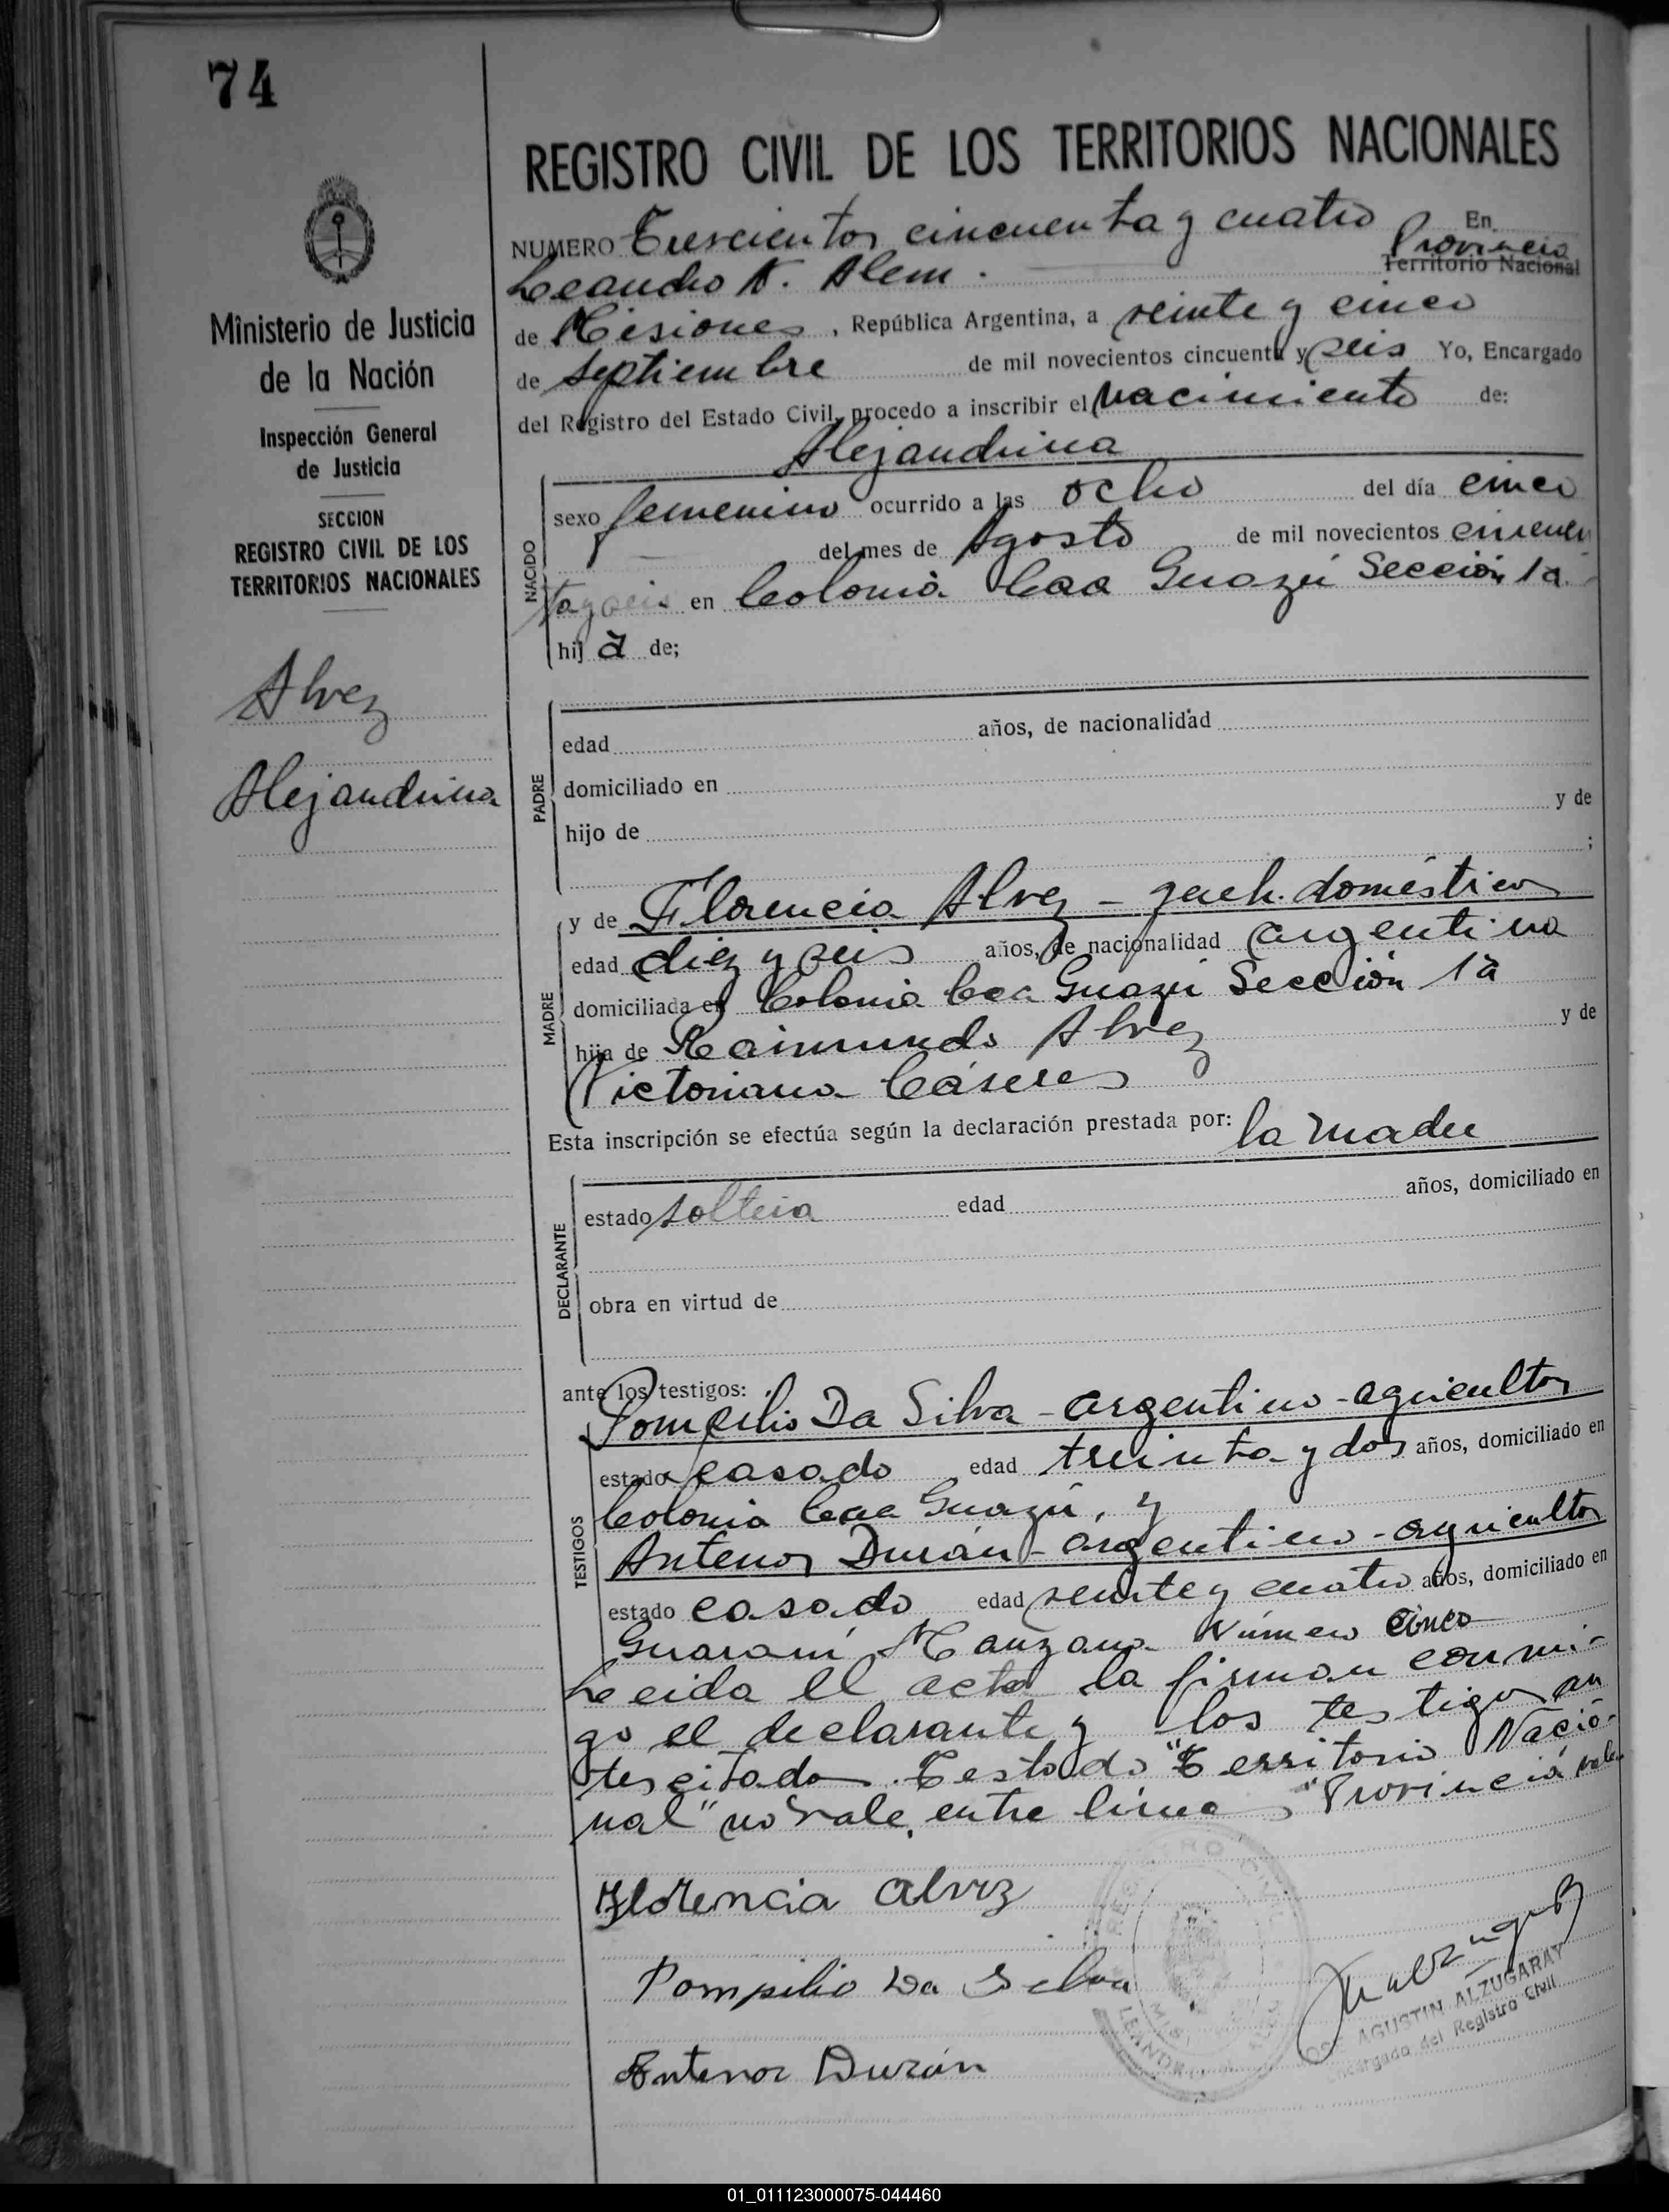 74
REGISTRO CIVIL DE LOS TERRITORIOS NACIONALES
NUMERO Trescientos cincuenta y cuatro En
Provincia
Leandro N. Alem. Territorio Nacional
de Misiones, República Argentina, a veinte y cinco
de septiembre de mil novecientos cincuenta y seis Yo, Encargado
del Registro del Estado Civil, procedo a inscribir el Nacimiento de:
Alejandrina
Ministerio de Justicia
de la Nación
Inspección General
de Justicia
SECCION
REGISTRO CIVIL DE LOS
TERRITORIOS NACIONALES
Alvez
Alejandrina
NACIDO
sexo femenino ocurrido a las ocho del día cinco
del mes de Agosto de mil novecientos cincuen
ta y seis en Colonia Caa Guazú Sección 1a
hij a de;
PADRE
edad años, de nacionalidad
domiciliado en
hijo de y de
;
MADRE
y de Florencia Alvez - queh. domésticos
edad diez y seis años, de nacionalidad argentina
domiciliada en Colonia Caa Guazú Sección 1a
hija de Raimundo Alvez y de
Victoriana Cáseres
Esta inscripción se efectúa según la declaración prestada por: la madre
DECLARANTE
estado soltera edad años, domiciliado en
obra en virtud de
ante los testigos:
TESTIGOS
Pompilio Da Silva - argentino - agricultor
estado casado edad treinta y dos años, domiciliado en
Colonia Caa Guazú, y
Antenor Durán - argentino - agricultor
estado casado edad veinte y cuatro años, domiciliado en
Guaraní Manzana Número cinco
Leida el acta la firman conmi-
go el declarante y los testigos an
tes citados. Testado "Territorio Nacio-
nal" no vale, entre lineas "Provincia" vale
Florencia alvez
Pompilio Da Silva
Antenor Durán
REGISTRO CIVIL
JOSE AGUSTIN ALZUGARAY
Encargado del Registro Civil
01_011123000075-044460